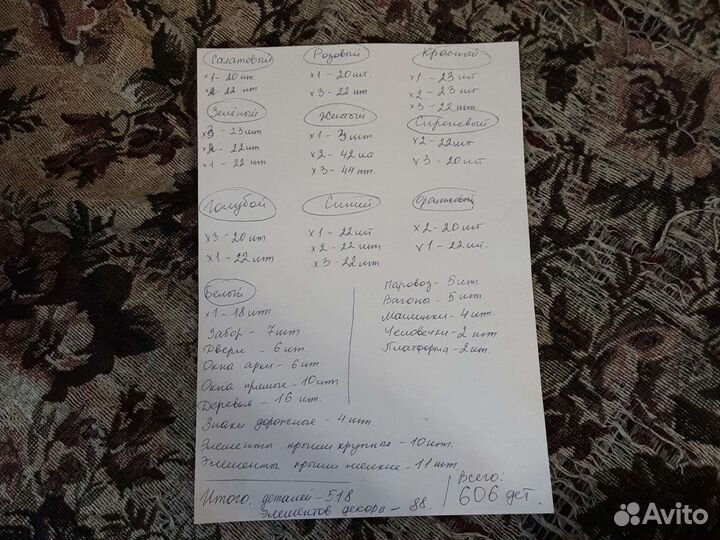 Салатовый
x1 - 20 шт
x2 - 22 шт
Розовый
x1 - 20 шт
x3 - 22 шт
Красный
x1 - 23 шт
x2 - 23 шт
x3 - 22 шт
Зелёный
x3 - 23 шт
x2 - 22 шт
x1 - 22 шт
Желтый
x1 - шт
x2 - 42 шт
x3 - 44 шт.
Сиреневый
x2 - 22 шт
x3 - 20 шт
Голубой
x3 - 20 шт
x1 - 22 шт
Синий
x1 - 22 шт
x2 - 22 шт
x3 - 22 шт.
Оранжевый
x2 - 20 шт
x1 - 22 шт.
Белый
x1 - 18 шт
Забор - 7 шт.
Двери - 6 шт
Окна арки - 6 шт.
Окна прямые - 10 шт
Деревья - 16 шт.
Паровоз - 5 шт.
Вагоны - 5 шт.
Машинки - 4 шт.
Человечки - 2 шт
Платформа - 2 шт.
Знаки дорожные - 4 шт.
Элементы крыши крупные - 10 шт.
Элементы крыши мелкие - 11 шт
Итого: деталей - 518
Элементов декора - 88.
Всего:
606 дет.
Avito